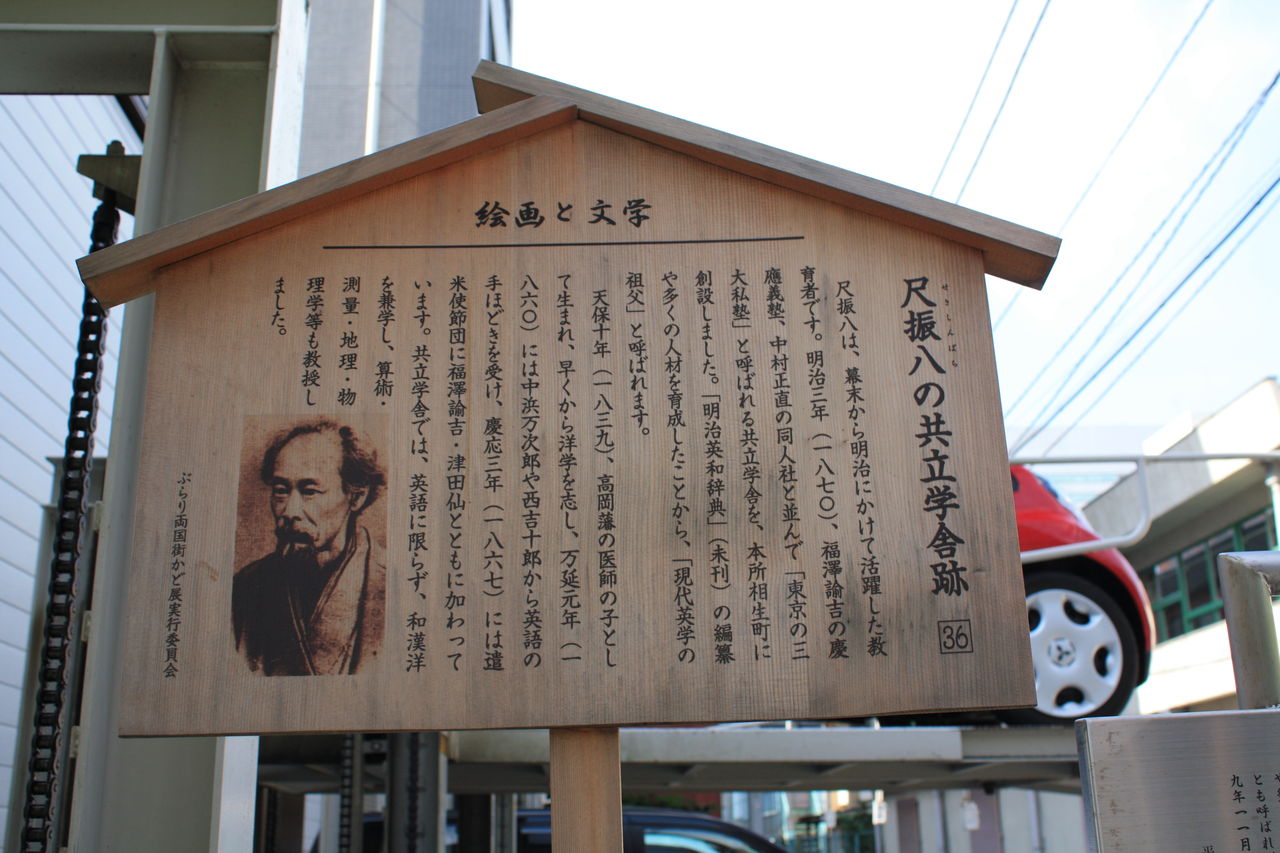 絵画と文学
尺振八の共立学舎跡
せきしんぱち
36
尺振八は、幕末から明治にかけて活躍した教
育者です。明治三年（一八七〇）、福澤諭吉の慶
應義塾、中村正直の同人社と並んで「東京の三
大私塾」と呼ばれる共立学舎を、本所相生町に
創設しました。「明治英和辞典」（未刊）の編纂
や多くの人材を育成したことから、「現代英学の
祖父」と呼ばれます。
天保十年（一八三九）、高岡藩の医師の子とし
て生まれ、早くから洋学を志し、万延元年（一
八六〇）には中浜万次郎や西吉十郎から英語の
手ほどきを受け、慶応三年（一八六七）には遣
米使節団に福澤諭吉・津田仙とともに加わって
います。共立学舎では、英語に限らず、和漢洋
を兼学し、算術・
測量・地理・物
理学等も教授し
ました。
ぶらり両国街かど展実行委員会
とも呼ばれ
九年一一月